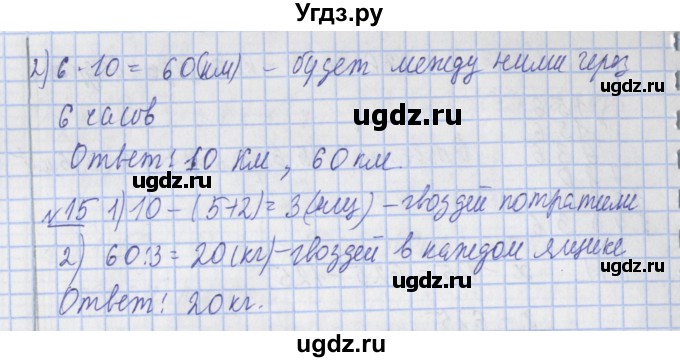 Угдз.ру
2) 6 · 10 = 60(км) – будет между ними через
ugdz.ru ugdz.ru
6 часов
ugdz.ru
Ответ: 10 км, 60 км.
ugdz.ru ugdz.ru
№15 1) 10 – (5+2) = 3 (ящ) – гвоздей потратили
ugdz.ru
2) 60:3 = 20(кг) – гвоздей в каждом ящике
ugdz.ru
Ответ: 20 кг.
ugdz.ru
ugdz.ru